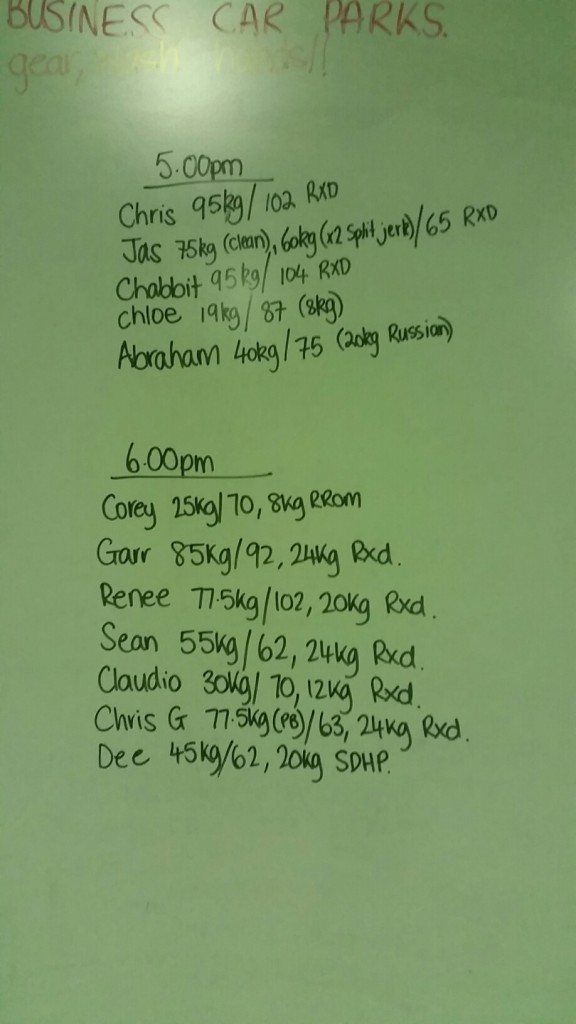 BUSINESS CAR PARKS.
gear, wash hands!!
5.00pm
Chris 95kg/102 RXD
Jas 75kg (clean), 60kg (x2 Split jerk)/65 RXD
Chabbit 95kg/104 RXD
chloe 19kg/87 (8kg)
Abraham 40kg/75 (20kg Russian)
6.00pm
Corey 25kg/70, 8kg RROM
Garr 85kg/92, 24kg Rxd.
Renee 77.5kg/102, 20kg Rxd.
Sean 55kg/62, 24kg Rxd.
Claudio 30kg/70, 12kg Rxd.
Chris G 77.5kg (PB)/63, 24kg Rxd.
Dee 45kg/62, 20kg SDHP.